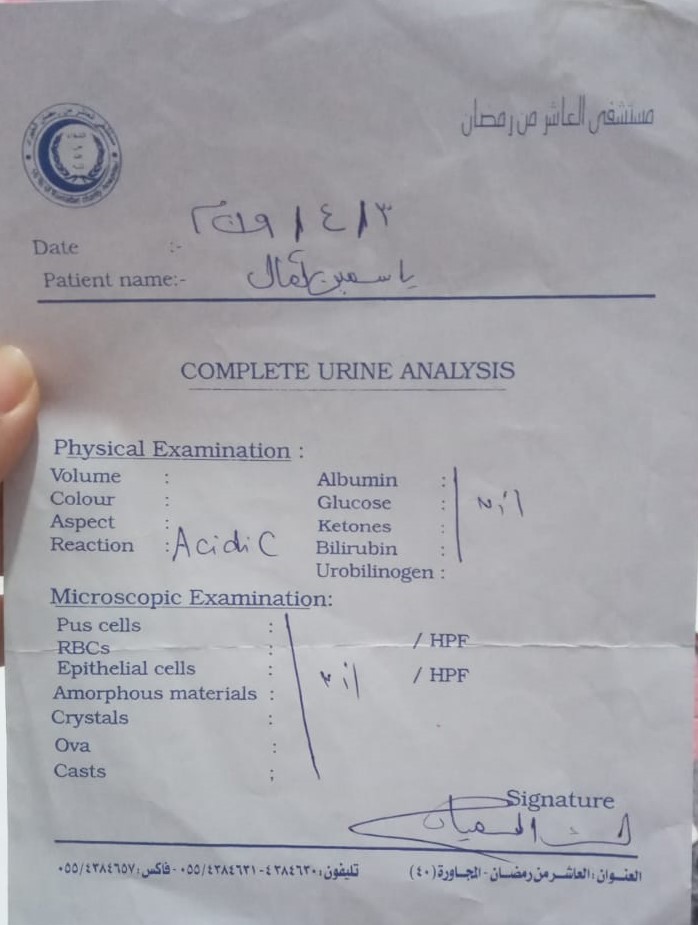 مستشفى العاشر من رمضان
Date :-
Patient name:- ياسمين كمال
COMPLETE URINE ANALYSIS
Physical Examination :
Volume :
Colour :
Aspect :
Reaction : Acidic
Albumin :
Glucose :
Ketones :
Bilirubin :
Urobilinogen :
Nil
Microscopic Examination:
Pus cells : / HPF
RBCs : / HPF
Epithelial cells :
Amorphous materials :
Crystals :
Ova :
Casts :
Nil
Signature
العنوان : العاشر من رمضان - المجاورة (٤٠) تليفون : ٤٣٨٤٦٣٠ - ٠٥٥/٤٣٨٤٦٣١ - فاكس : ٠٥٥/٤٣٨٤٦٥٧